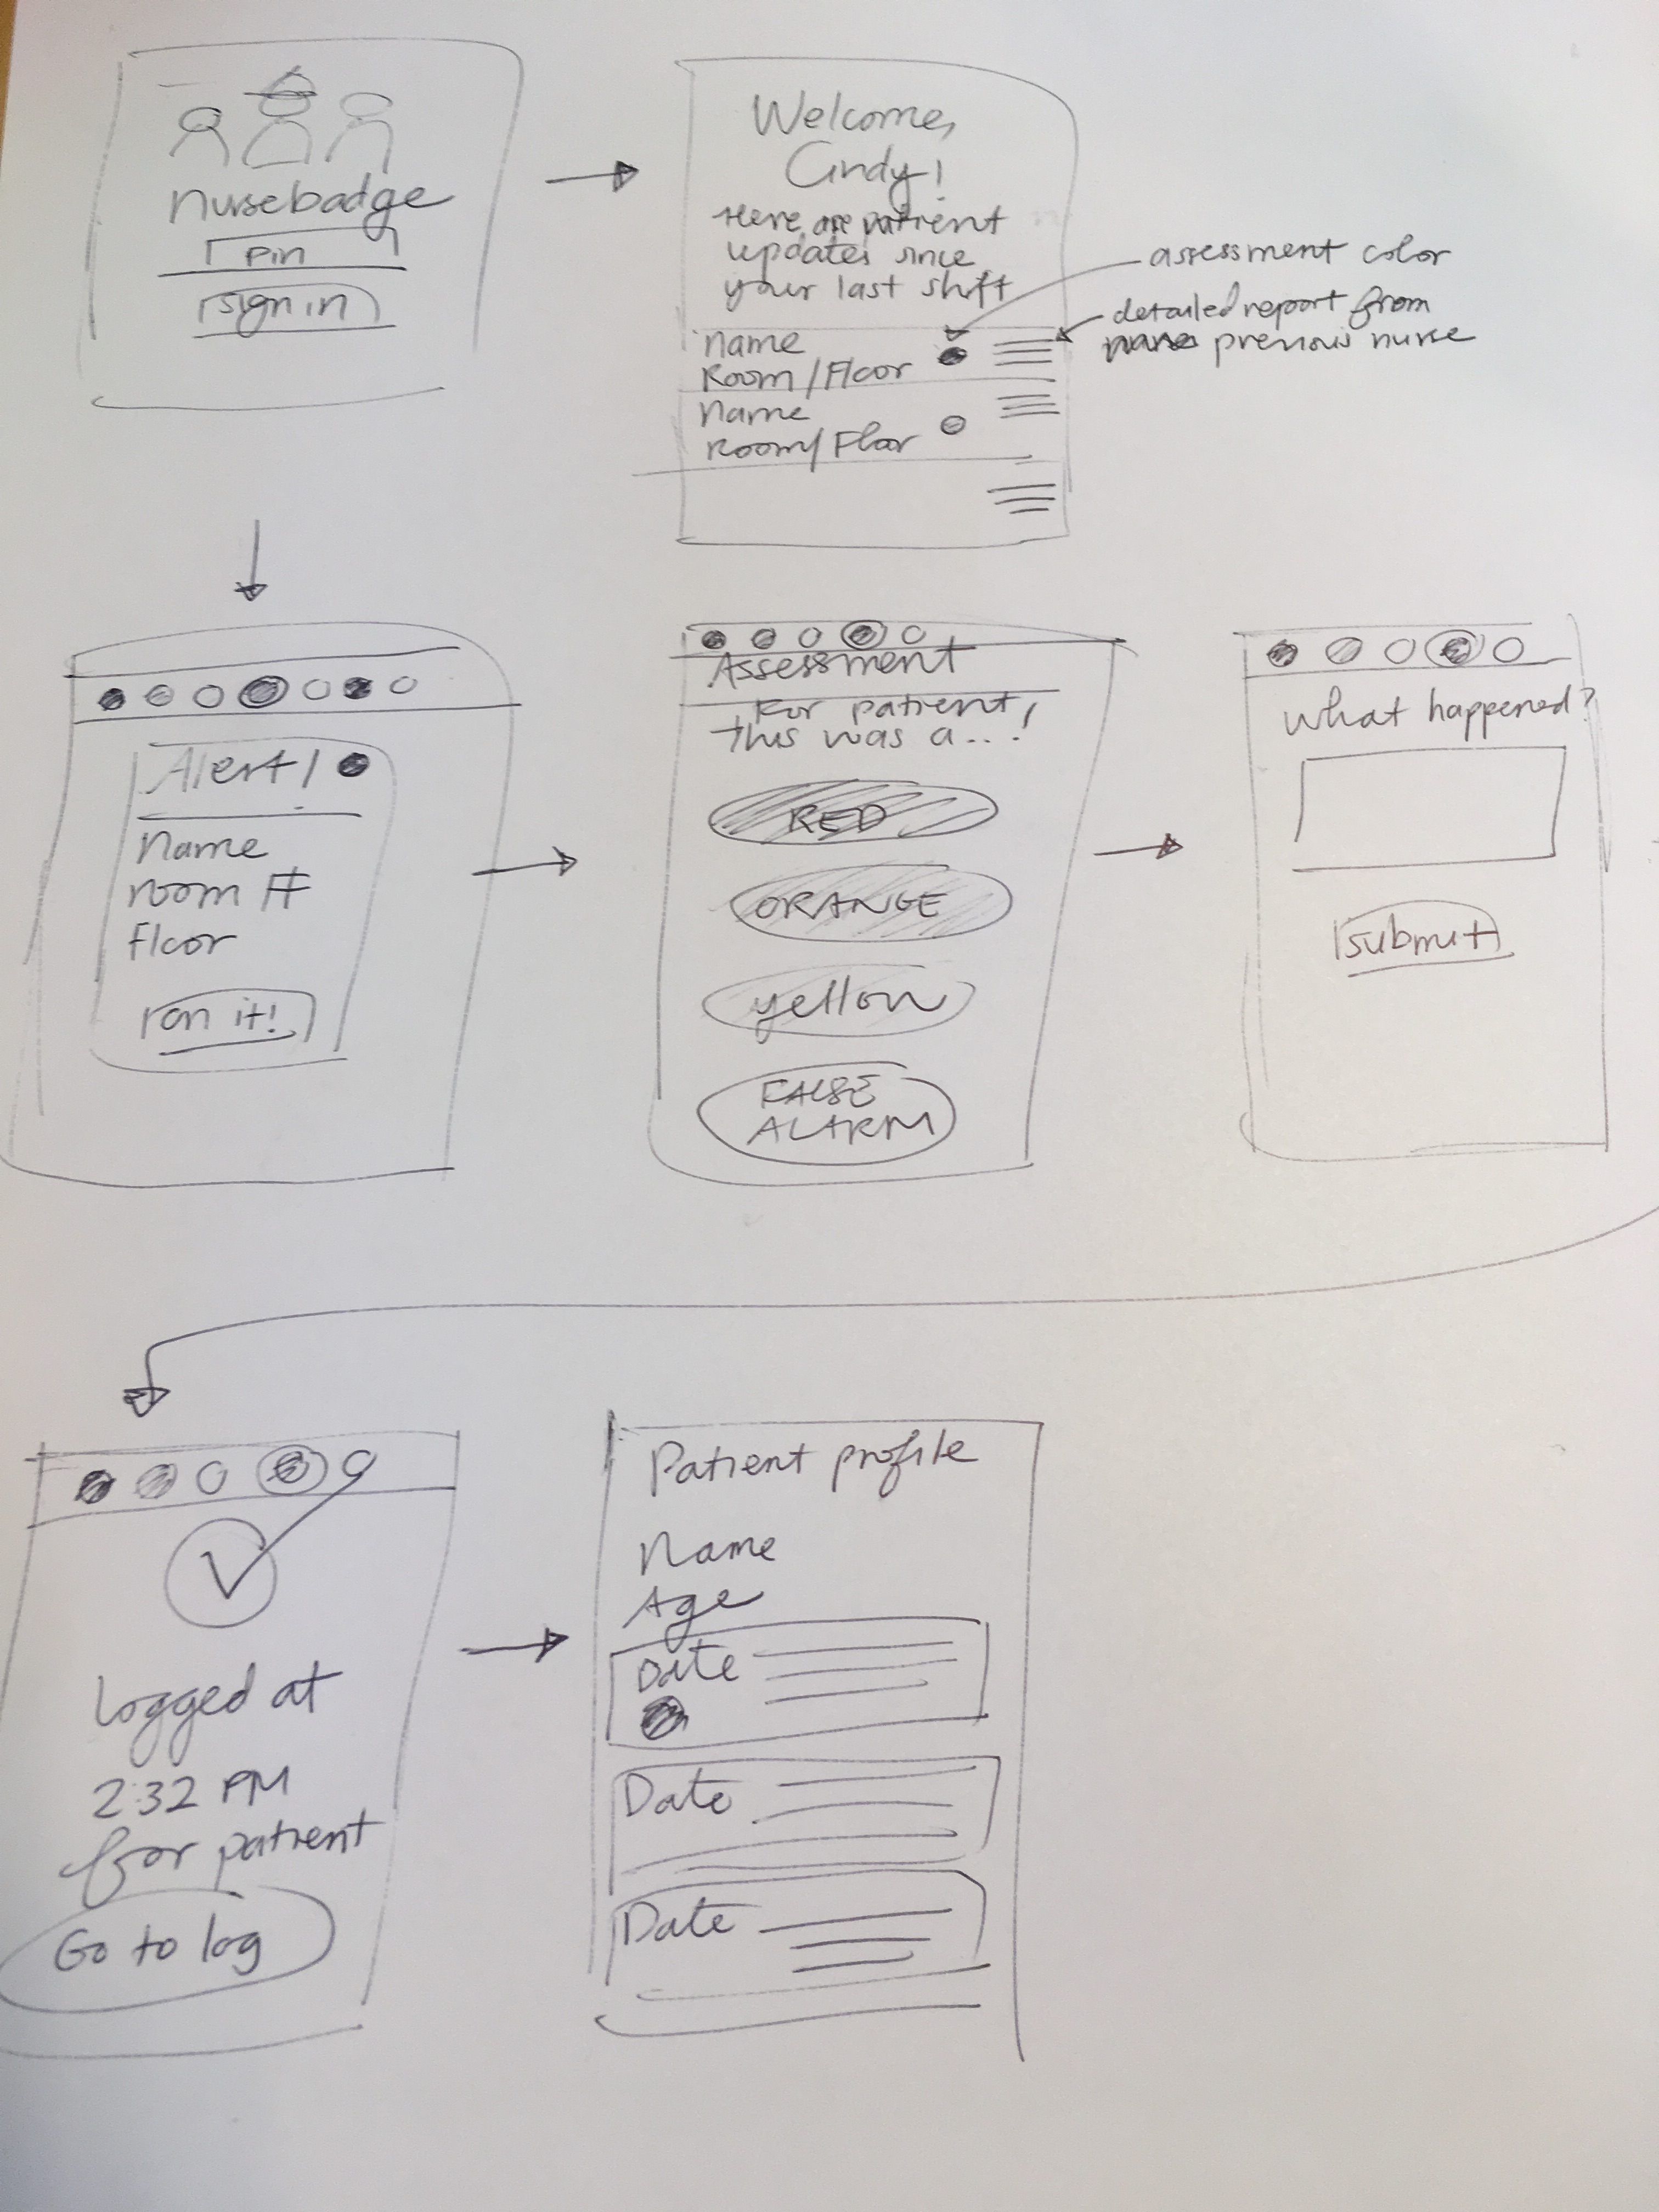 nursebadge
pin
sign in
Welcome,
Cindy!
Here are patient
updates since
your last shift
assessment color
detailed report from
previous nurse
name
Room/Floor
name
Room/Floor
Alert!
Name
room #
floor
on it!
Assessment
For patient,
this was a...!
RED
ORANGE
yellow
FALSE
ALARM
What happened?
submit
logged at
2:32 PM
for patient
Go to log
Patient profile
Name
Age
Date
Date
Date